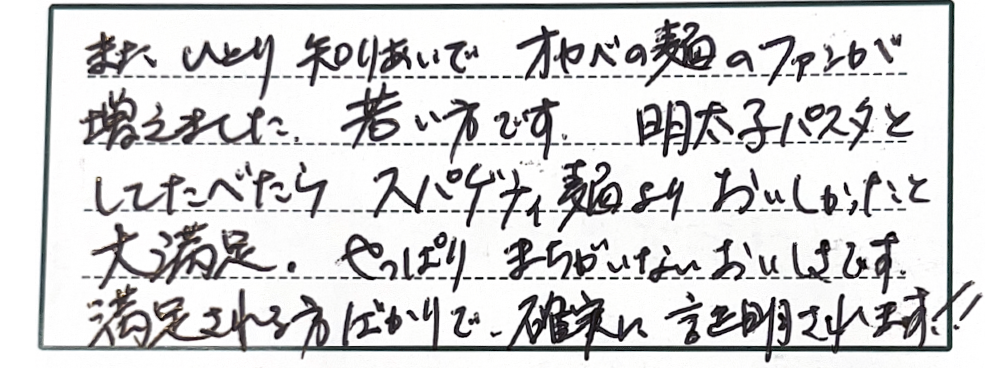 また、ひとり 知りあいで オカベの麺のファンが
増えました。若い方です。 明太子パスタと
してたべたら スパゲティ麺より おいしかったと
大満足。 やっぱり まちがいない おいしさです。
満足される方ばかりで、確実に 証明されます!!